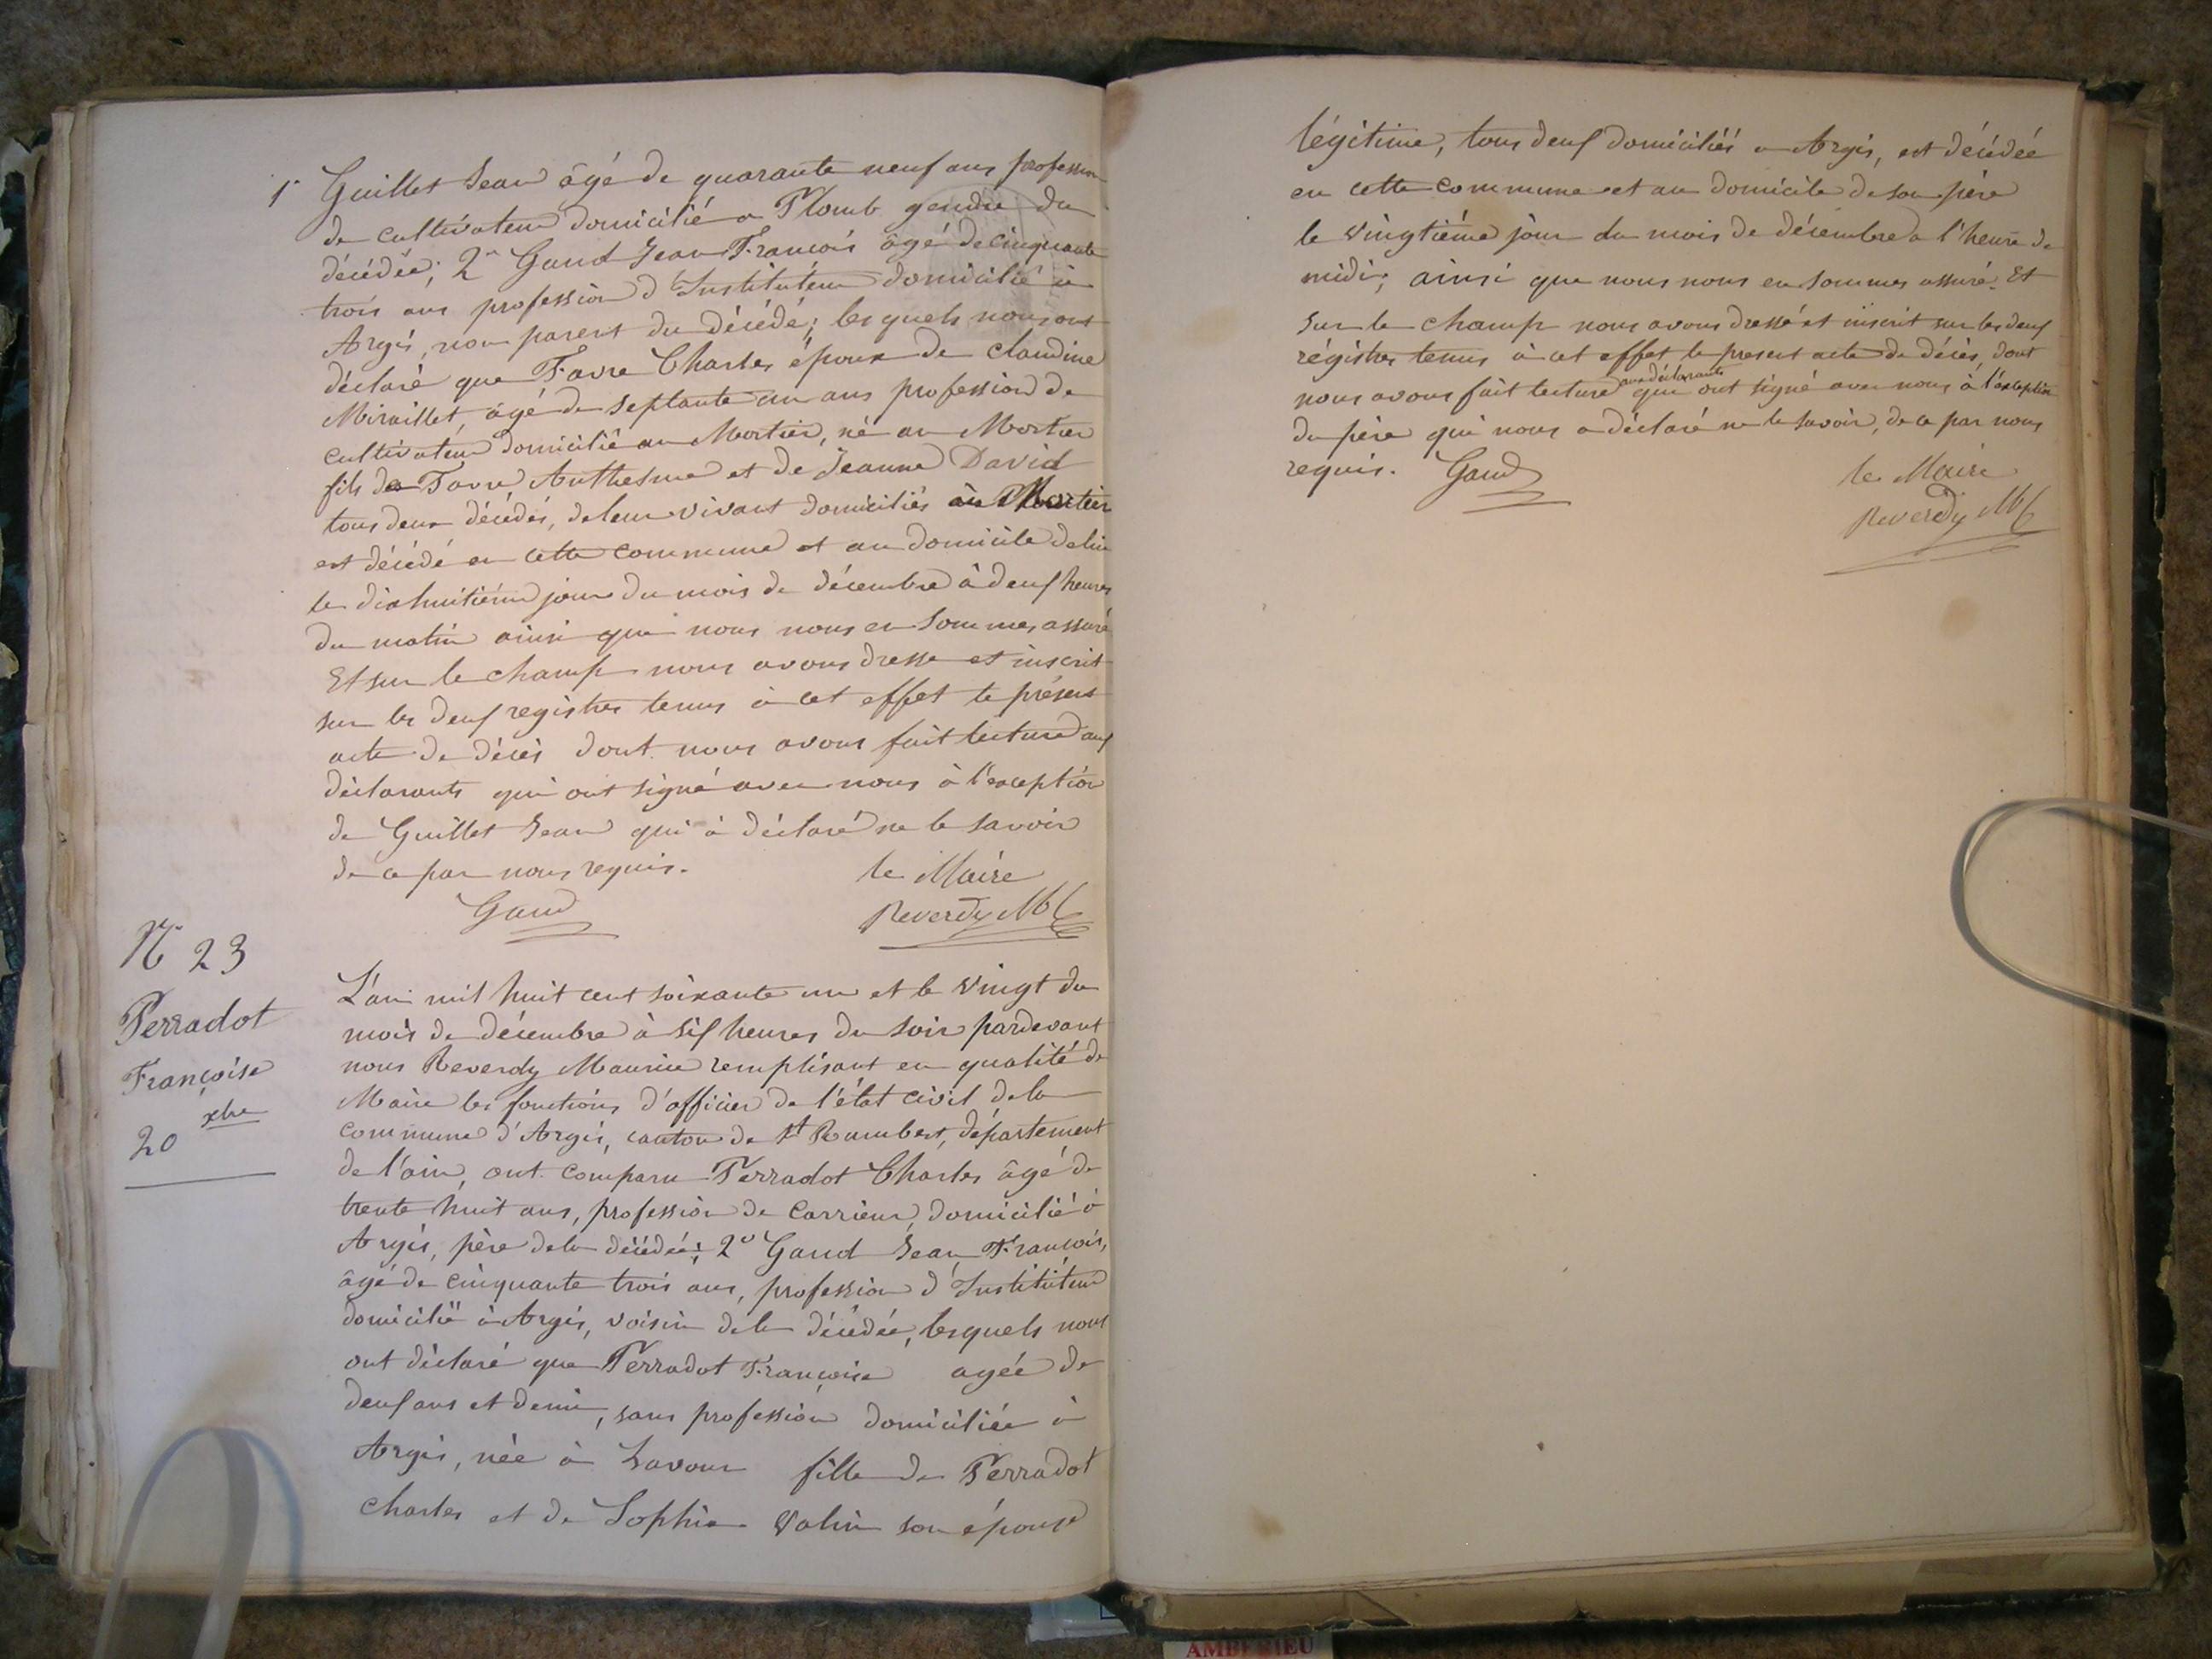 1° Guillet Jean âgé de quarante neuf ans profession
de cultivateur domicilié a Plomb gendre du
décédée; 2° Gaud Jean François âgé de cinquante
trois ans profession d'Instituteur domicilié à
Argis, non parent du décédé; lesquels nous ont
déclaré que Favre Charles époux de claudine
Miraillet, âgé de septante un ans profession de
cultivateur domicilié au Mortier, né au Mortier
fils de Favre Anthesme et de Jeanne David
tous deux décédés, de leur vivant domiciliés au Mortier
est décédé en cette commune et au domicile de lui
le dixhuitième jour du mois de décembre à deux heures
du matin ainsi que nous nous en sommes assuré
Et sur le champ nous avons dressé et inscrit
sur les deux registres tenus à cet effet le présent
acte de décès dont nous avons fait lecture aux
déclarants qui ont signé avec nous à l'exception
de Guillet Jean qui à déclaré ne le savoir
de ce par nous requis. le Maire
Gaud Reverdy
N° 23
Perradot
Françoise
20 xbre
L'an mil huit cent soixante un et le vingt du
mois de décembre à six heures du soir pardevant
nous Reverdy Maurice remplisant en qualité de
Maire les fonctions d'officier de l'état civil de la
commune d'Argis, canton de St Rambert, département
de l'ain, ont comparu Perradot Charles âgé de
trente huit ans, profession de Carrieur, domicilié à
Argis, père de la décédée; 2° Gaud Jean François,
âgé de cinquante trois ans, profession d'Instituteur
domicilié à Argis, voisin de la décédée, lesquels nous
ont déclaré que Perradot Françoise agée de
deux ans et demi, sans profession domiciliée à
Argis, née à Lavour fille de Perradot
Charles et de Sophie Valin son épouse
légitime, tous deux domiciliés a Argis, est décédée
en cette commune et au domicile de son père
le vingtième jour du mois de décembre a l'heure de
midi; ainsi que nous nous en sommes assuré. Et
sur le champ nous avons dressé et inscrit sur les deux
régistres tenus à cet effet le present acte de décès, dont
nous avons fait lecture aux déclarants qui ont signé avec nous à l'exception
du père qui nous a déclaré ne le savoir, de ce par nous
requis. Gaud le Maire
Reverdy
AMBERIEU